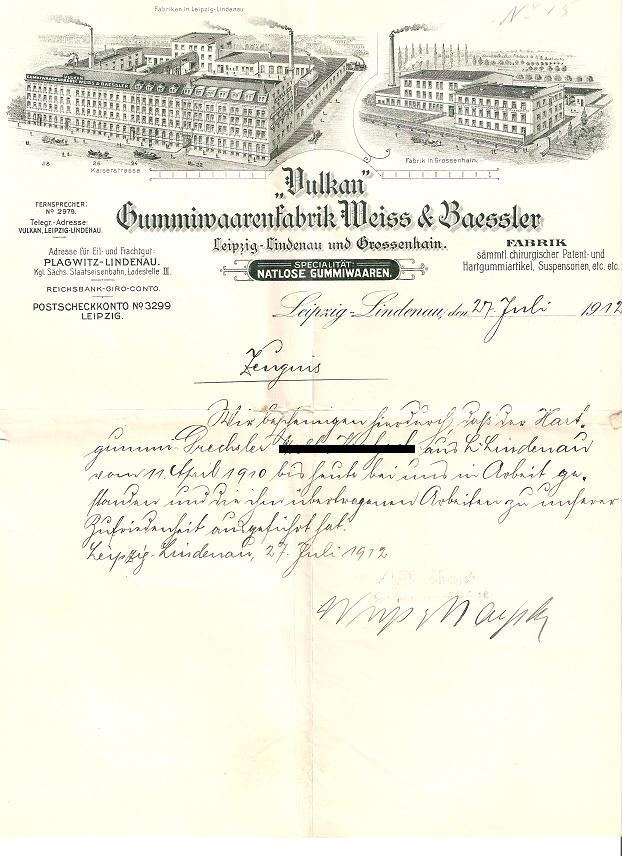 Fabriken in Leipzig-Lindenau
No 15
VULKAN
GUMMIWAARENFABRIK WEISS & BAESSLER
28 26 24
Kaiserstrasse
Fabrik in Grossenhain.
„Vulkan”
Gummiwaarenfabrik Weiss & Baessler
Leipzig-Lindenau und Grossenhain.
SPECIALITÄT:
NATLOSE GUMMIWAAREN.
FERNSPRECHER:
No 2979.
Telegr.-Adresse:
VULKAN, LEIPZIG-LINDENAU.
Adresse für Eil- und Frachtgut:
PLAGWITZ-LINDENAU.
Kgl. Sächs. Staatseisenbahn, Ladestelle III.
REICHSBANK-GIRO-CONTO.
POSTSCHECKKONTO No 3299
LEIPZIG.
FABRIK
sämmtl. chirurgischer Patent- und
Hartgummiartikel, Suspensorien, etc. etc.
Leipzig-Lindenau, den 27. Juli 1912
Zeugnis
Wir bescheinigen hierdurch, daß der Hart-
gummi-Drechsler aus L.-Lindenau
vom 11. April 1910 bis heute bei uns in Arbeit ge-
standen und die ihm übertragenen Arbeiten zu unserer
Zufriedenheit ausgeführt hat.
Leipzig-Lindenau, 27. Juli 1912